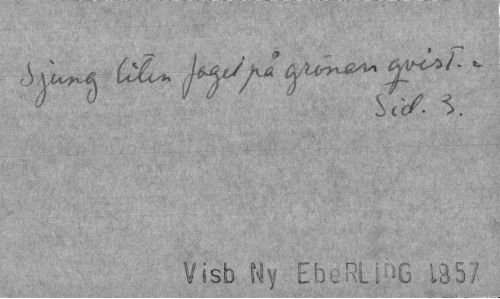 Sjung liten fogel på grönan qvist..
Sid. 3.
Visb Ny EbeRLiNG 1857